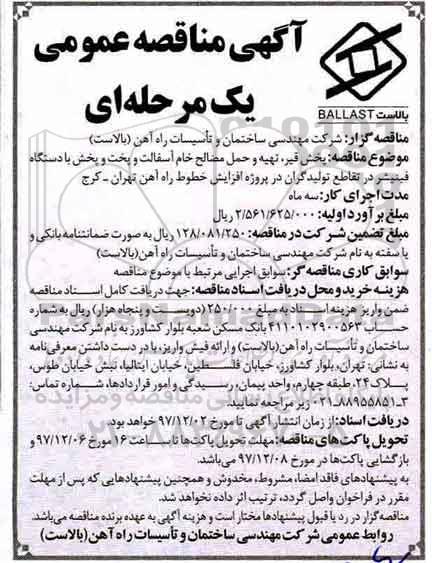 آگهی مناقصه عمومی
یک مرحله‌ای
بالاست BALLAST
مناقصه گزار: شرکت مهندسی ساختمان و تأسیسات راه آهن (بالاست)
موضوع مناقصه: پخش قیر، تهیه و حمل مصالح خام آسفالت و پخت و پخش با دستگاه
فینیشر در تقاطع تولیدگران در پروژه افزایش خطوط راه آهن تهران ـ کرج
مدت اجرای کار: سه ماه
مبلغ برآورد اولیه: ۲/۵۶۱/۶۲۵/۰۰۰ ریال
مبلغ تضمین شرکت در مناقصه: ۱۲۸/۰۸۱/۲۵۰ ریال به صورت ضمانتنامه بانکی و
یا سفته به نام شرکت مهندسی ساختمان و تأسیسات راه آهن (بالاست)
سوابق کاری مناقصه گر: سوابق اجرایی مرتبط با موضوع مناقصه
هزینه خرید و محل دریافت اسناد مناقصه: جهت دریافت کامل اسناد مناقصه
ضمن واریز هزینه اسناد به مبلغ ۲۵۰/۰۰۰ (دویست و پنجاه هزار) ریال به شماره
حساب ۴۱۱۰۱۰۲۹۰۰۵۶۳ بانک مسکن شعبه بلوار کشاورز به نام شرکت مهندسی
ساختمان و تأسیسات راه آهن (بالاست) و ارائه فیش واریز، با در دست داشتن معرفی‌نامه
به نشانی: تهران، بلوار کشاورز، خیابان فلسطین، خیابان ایتالیا، نبش خیابان طوس،
پلاک ۲۴، طبقه چهارم، واحد پیمان، رسیدگی و امور قراردادها، شماره تماس:
۳ـ۸۸۹۵۵۸۵۱ـ۰۲۱ زیر مراجعه نمایید.
دریافت اسناد: از زمان انتشار آگهی تا مورخ ۹۷/۱۲/۰۲ خواهد بود.
تحویل پاکت‌های مناقصه: مهلت تحویل پاکت‌ها تا ساعت ۱۶ مورخ ۹۷/۱۲/۰۶ و
بازگشایی پاکت‌ها در مورخ ۹۷/۱۲/۰۸ می‌باشد.
به پیشنهادهای فاقد امضا، مشروط، مخدوش و همچنین پیشنهادهایی که پس از مهلت
مقرر در فراخوان واصل گردد، ترتیب اثر داده نخواهد شد.
مناقصه‌گزار در رد یا قبول پیشنهادها مختار است و هزینه آگهی به عهده برنده مناقصه می‌باشد.
روابط عمومی شرکت مهندسی ساختمان و تأسیسات راه آهن (بالاست)